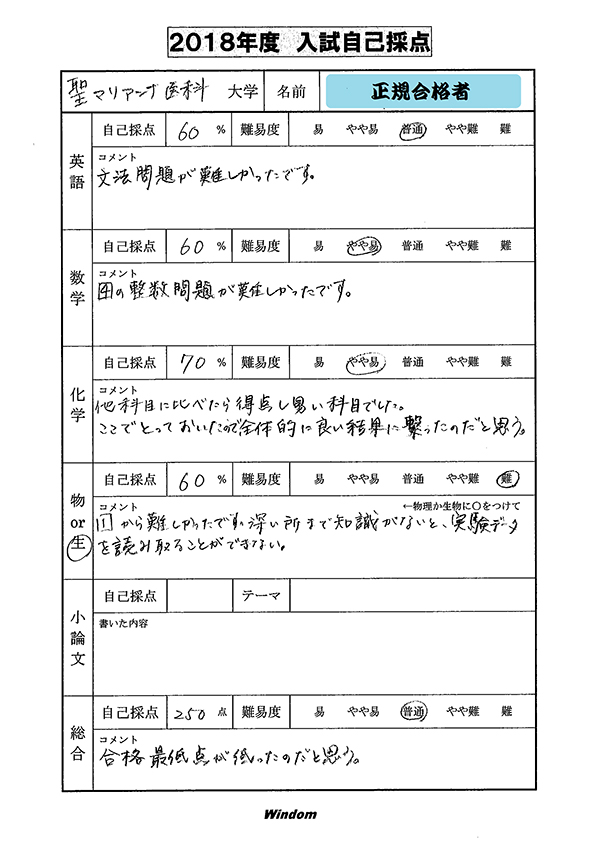 2018年度 入試自己採点
聖マリアンナ医科 大学 名前 正規合格者
英語
自己採点 60 % 難易度 易 やや易 普通 やや難 難
コメント
文法問題が難しかったです。
数学
自己採点 60 % 難易度 易 やや易 普通 やや難 難
コメント
四の整数問題が難しかったです。
化学
自己採点 70 % 難易度 易 やや易 普通 やや難 難
コメント
他科目に比べたら得点し易い科目でした。
ここでとっておいたので全体的に良い結果に繋ったのだと思う。
物or生
自己採点 60 % 難易度 易 やや易 普通 やや難 難
コメント ←物理か生物に〇をつけて
から難しかったです。深い所まで知識がないと、実験データ
を読み取ることができない。
小論文
自己採点 テーマ
書いた内容
総合
自己採点 250 点 難易度 易 やや易 普通 やや難 難
コメント
合格最低点が低ったのだと思う。
Windom